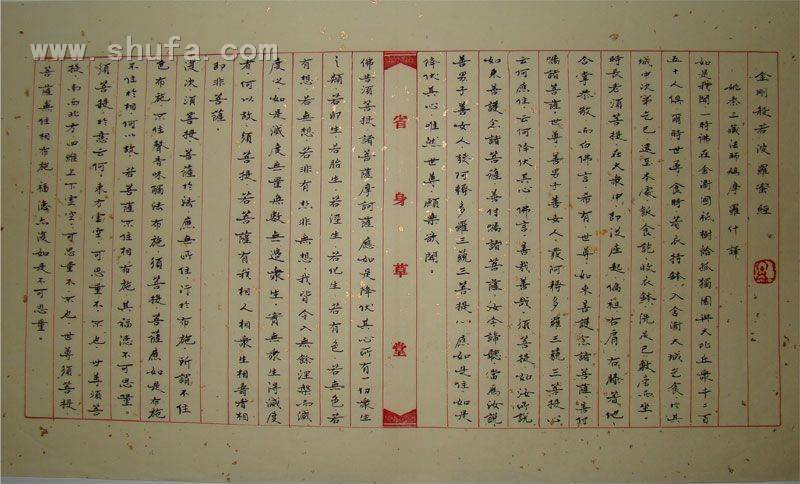 金剛般若波羅蜜經
姚秦三藏法師鳩摩羅什譯
如是我聞一時佛在舍衛國祇樹給孤獨園與大比丘眾千二百
五十人俱爾時世尊食時著衣持鉢入舍衛大城乞食於其
城中次第乞已還至本處飯食訖收衣鉢洗足已敷座而坐
時長老須菩提在大眾中即從座起偏袒右肩右膝著地
合掌恭敬而白佛言希有世尊如來善護念諸菩薩善付
囑諸菩薩世尊善男子善女人發阿耨多羅三藐三菩提心
云何應住云何降伏其心佛言善哉善哉須菩提如汝所說
如來善護念諸菩薩善付囑諸菩薩汝今諦聽當為汝說
善男子善女人發阿耨多羅三藐三菩提心應如是住如是
降伏其心唯然世尊願樂欲聞
省身草堂
佛告須菩提諸菩薩摩訶薩應如是降伏其心所有一切眾生
之類若卵生若胎生若濕生若化生若有色若無色若
有想若無想若非有想非無想我皆令入無餘涅槃而滅
度之如是滅度無量無數無邊眾生實無眾生得滅度
者何以故須菩提若菩薩有我相人相眾生相壽者相
即非菩薩
復次須菩提菩薩於法應無所住行於布施所謂不住
色布施不住聲香味觸法布施須菩提菩薩應如是布施
不住於相何以故若菩薩不住相布施其福德不可思量
須菩提於意云何東方虛空可思量不不也世尊須菩
提南西北方四維上下虛空可思量不不也世尊須菩提
菩薩無住相布施福德亦復如是不可思量
www.shufa.com